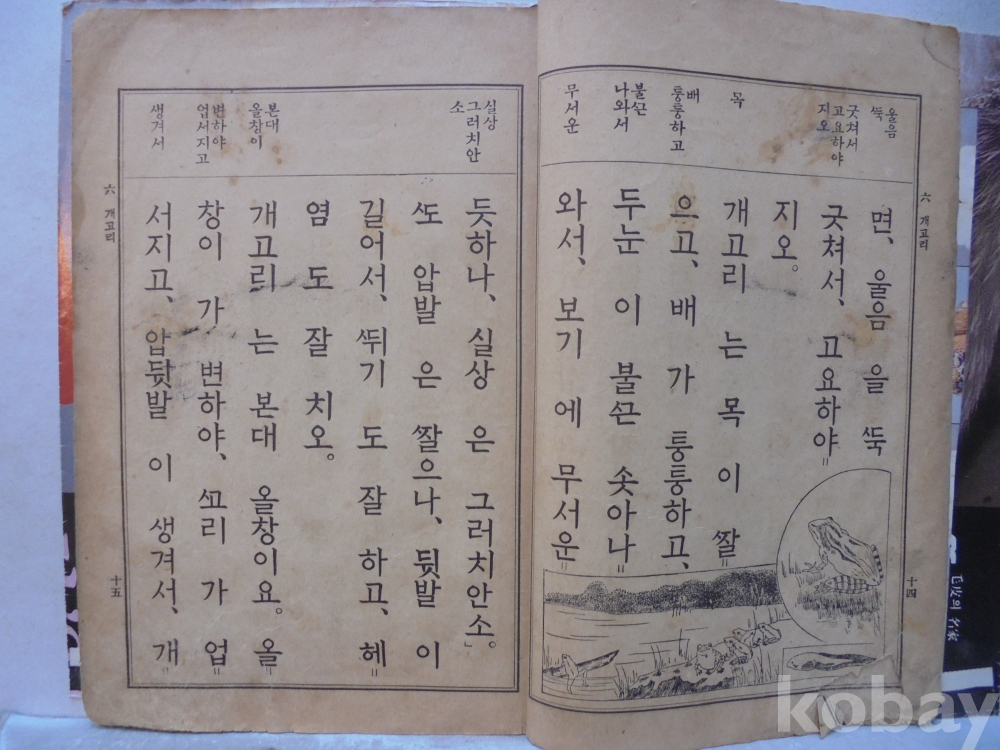 六 개고리
十四
울음
ᄯᅮᆨ
긋쳐서
고요하야
지오
목
배
퉁퉁하고
불ᄭᅳᆫ
나와서
무서운
면, 울음 을 ᄯᅮᆨ
긋쳐서, 고요하야〃
지오。
개고리 는 목 이 짤〃
으고, 배 가 퉁퉁하고,〃
두눈 이 불ᄭᅳᆫ 솟아나〃
와서, 보기 에 무서운〃
실상
그러치안
소
본대
올창이
변하야
업서지고
생겨서
듯하나, 실상 은 그러치안소。」
ᄯᅩ 압발 은 짤으나, 뒷발 이
길어서, ᄯᅱ기 도 잘 하고, 헤〃
염 도 잘 치오。
개고리 는 본대 올창이요。 올〃
창이 가 변하야, ᄭᅩ리 가 업〃
서지고, 압뒷발 이 생겨서, 개〃
六 개고리
十五
毛皮의 名家
kobay